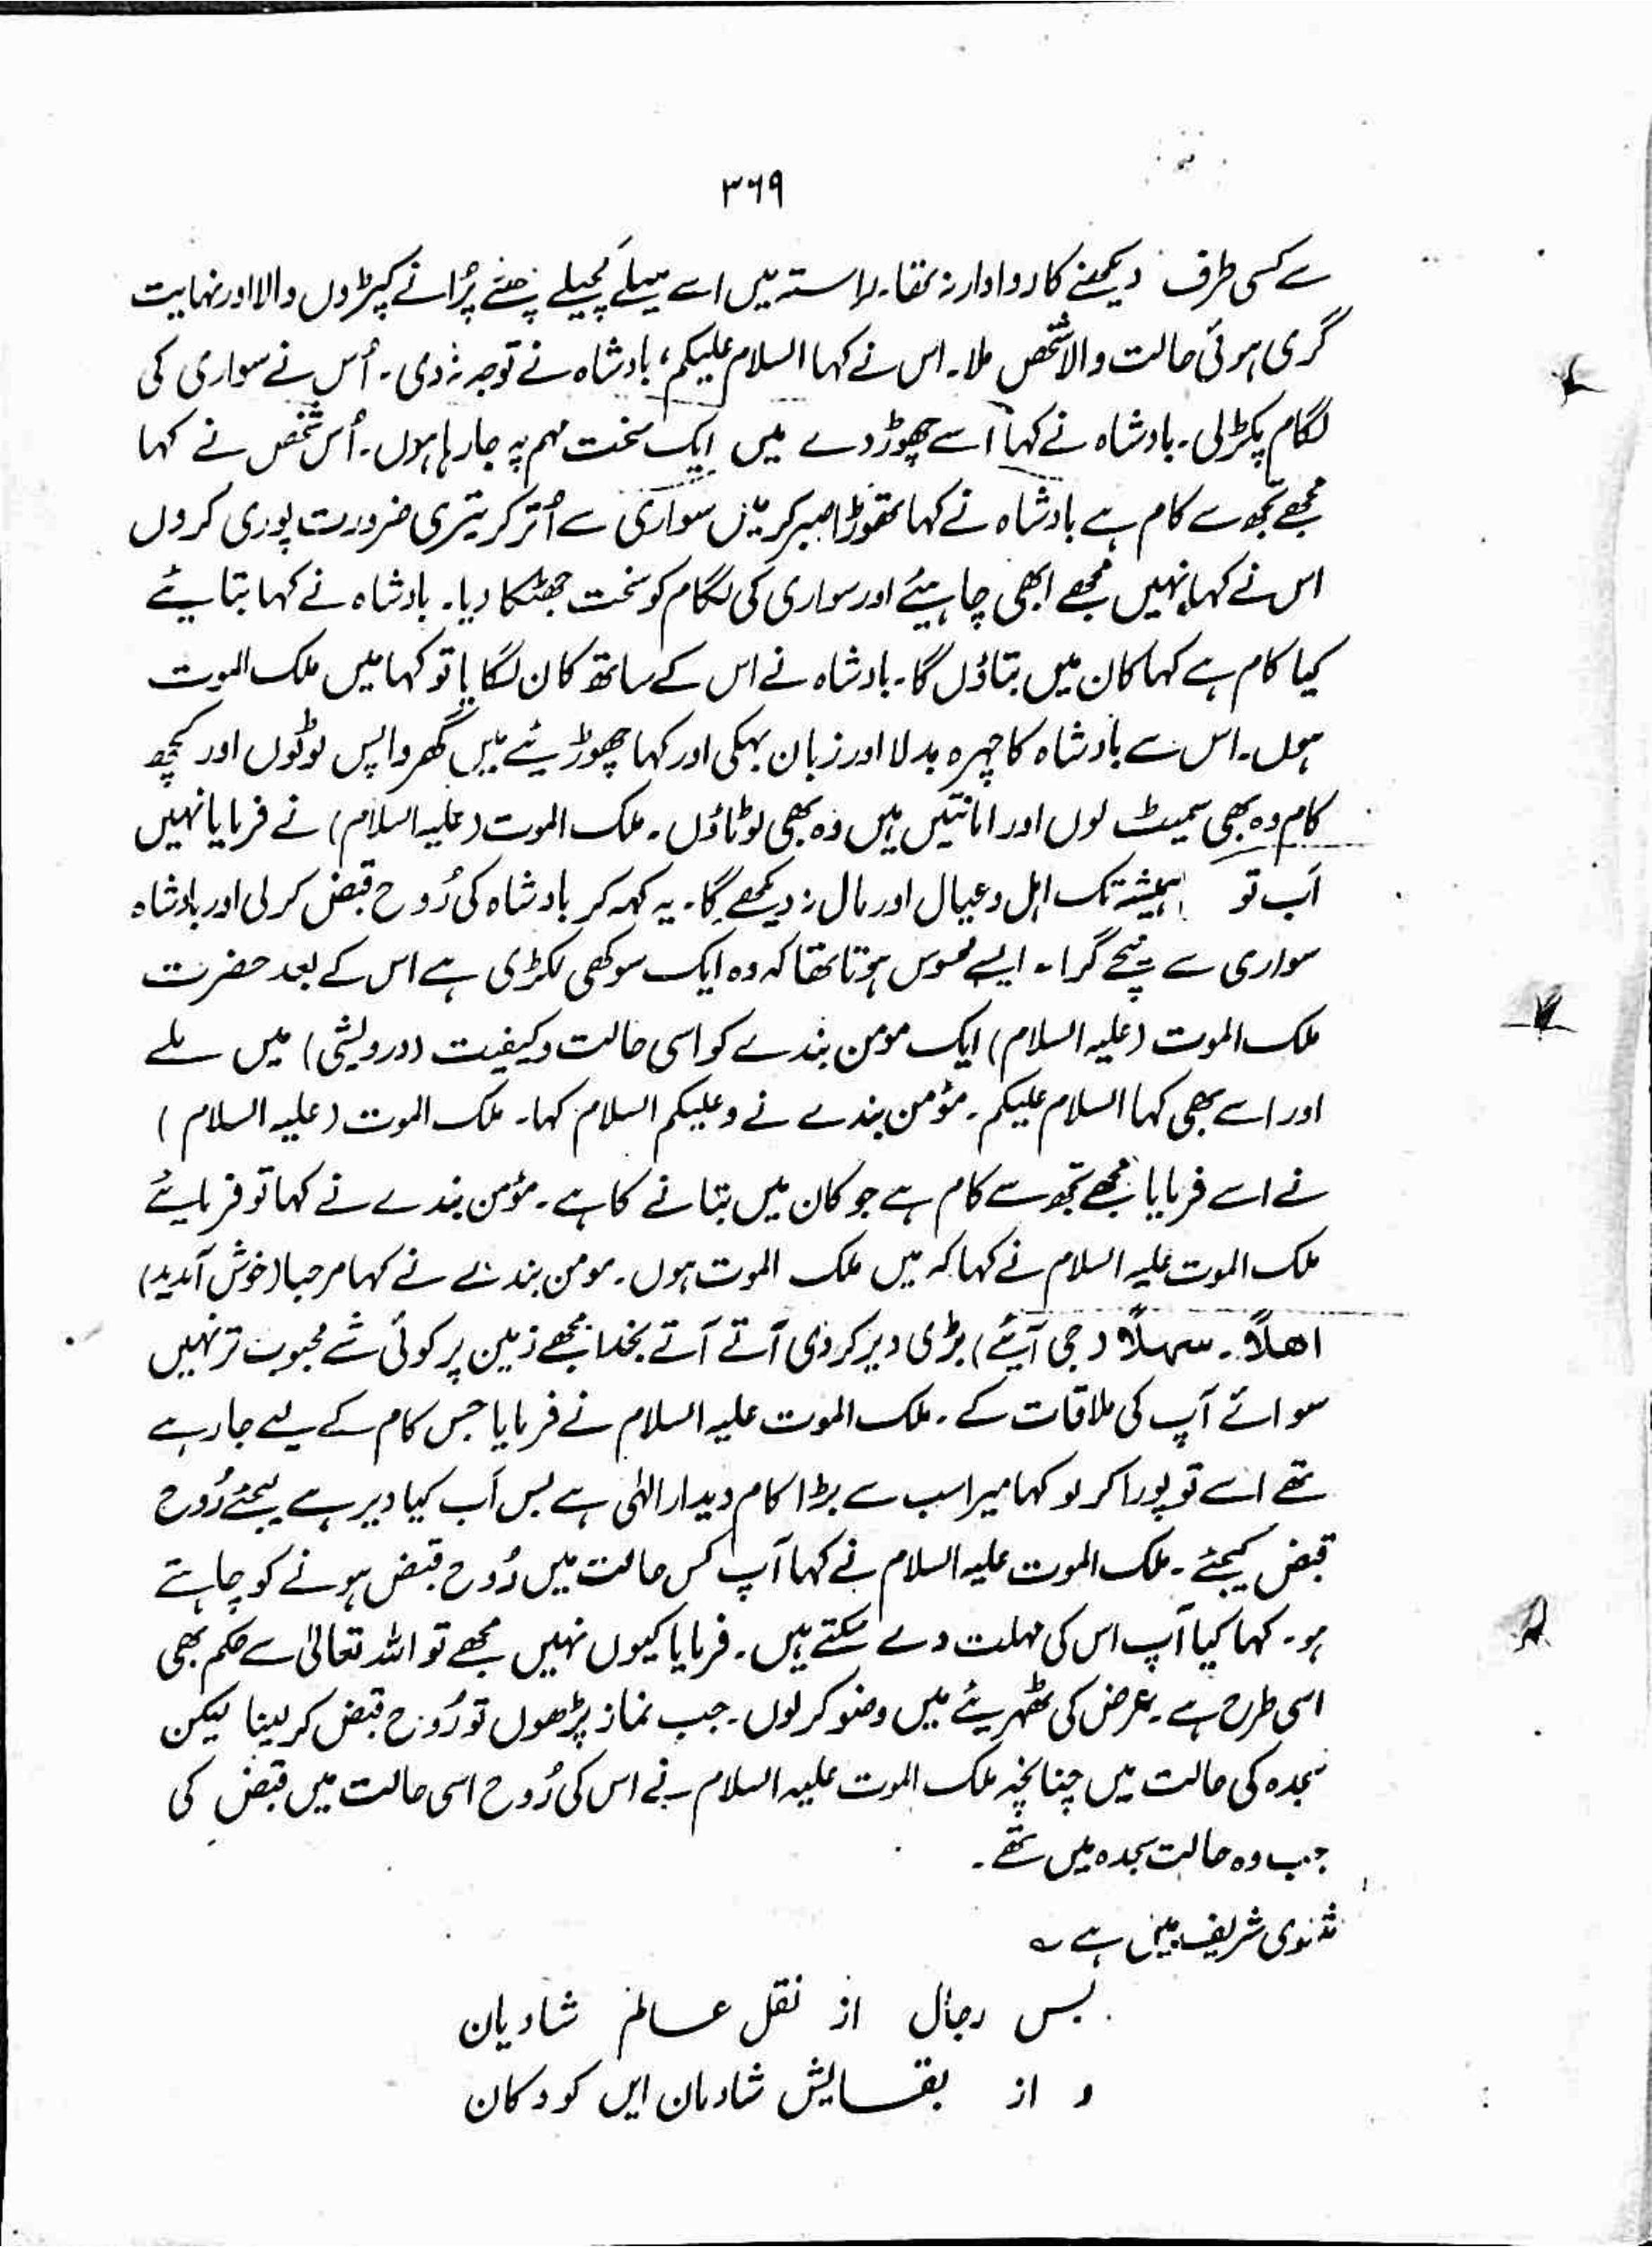 ۳۶۹
سے کسی طرف دیکھنے کا روادار نہ تھا۔ راستہ میں اسے میلے کچیلے پھٹے پُرانے کپڑوں والا اور نہایت
گری ہوئی حالت والا شخص ملا۔ اس نے کہا السلام علیکم، بادشاہ نے توجہ نہ دی۔ اُس نے سواری کی
لگام پکڑ لی۔ بادشاہ نے کہا اسے چھوڑ دے میں ایک سخت مہم پہ جا رہا ہوں۔ اُس شخص نے کہا
مجھے تجھ سے کام ہے بادشاہ نے کہا تھوڑا صبر کر میں سواری سے اُتر کر تیری ضرورت پوری کروں
اس نے کہا نہیں مجھے ابھی چاہیئے اور سواری کی لگام کو سخت جھٹکا دیا۔ بادشاہ نے کہا بتایئے
کیا کام ہے کہا کان میں بتاؤں گا۔ بادشاہ نے اس کے ساتھ کان لگایا تو کہا میں ملک الموت
ہوں۔ اس سے بادشاہ کا چہرہ بدلا اور زبان بہکی اور کہا چھوڑیئے میں گھر واپس لوٹوں اور کچھ
کام وہ بھی سمیٹ لوں اور امانتیں ہیں وہ بھی لوٹاؤں۔ ملک الموت (علیہ السلام) نے فرمایا نہیں
اَب تو ہمیشہ تک اہل و عیال اور مال نہ دیکھے گا۔ یہ کہہ کر بادشاہ کی رُوح قبض کر لی اور بادشاہ
سواری سے نیچے گرا۔ ایسے محسوس ہوتا تھا کہ وہ ایک سوکھی لکڑی ہے اس کے بعد حضرت
ملک الموت (علیہ السلام) ایک مومن بندے کو اسی حالت و کیفیت (درویشی) میں ملے
اور اسے بھی کہا السلام علیکم۔ مؤمن بندے نے وعلیکم السلام کہا۔ ملک الموت (علیہ السلام)
نے اسے فرمایا مجھے تجھ سے کام ہے جو کان میں بتانے کا ہے۔ مؤمن بندے نے کہا تو فرمایئے
ملک الموت علیہ السلام نے کہا کہ میں ملک الموت ہوں۔ مومن بندے نے کہا مرحبا (خوش آمدید)
اھلاً۔ سہلاً (جی آیئے) بڑی دیر کر دی آتے آتے بخدا مجھے زمین پر کوئی شے محبوب تر نہیں
سوائے آپ کی ملاقات کے۔ ملک الموت علیہ السلام نے فرمایا جس کام کے لیے جا رہے
تھے اسے تو پورا کر لو کہا میرا سب سے بڑا کام دیدار الٰہی ہے بس اَب کیا دیر ہے لیجئے رُوح
قبض کیجئے۔ ملک الموت علیہ السلام نے کہا آپ کس حالت میں رُوح قبض ہونے کو چاہتے
ہو۔ کہا کیا آپ اس کی مہلت دے سکتے ہیں۔ فرمایا کیوں نہیں مجھے تو اللہ تعالیٰ سے حکم بھی
اسی طرح ہے۔ عرض کی ٹھہریئے میں وضو کر لوں۔ جب نماز پڑھوں تو رُوح قبض کر لینا لیکن
سجدہ کی حالت میں چنانچہ ملک الموت علیہ السلام نے اس کی رُوح اسی حالت میں قبض کی
جب وہ حالت سجدہ میں تھے۔
مثنوی شریف میں ہے ؎
بس رجال از نقل عالم شادیان
و از بقایش شادمان ایں کودکان